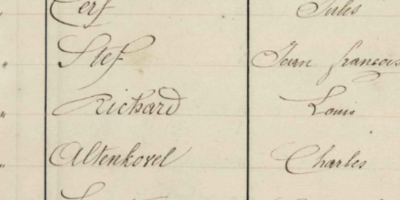 Cerf Jules
" Stef Jean françois
" Richard Louis
" Altenkovel Charles